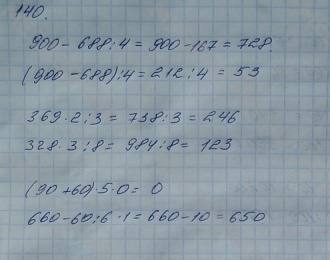 140.
900 - 688 : 4 = 900 - 167 = 728.
(900 - 688) : 4 = 212 : 4 = 53
369 · 2 : 3 = 738 : 3 = 246
328 · 3 : 8 = 984 : 8 = 123
(90 + 60) · 5 · 0 = 0
660 - 60 : 6 · 1 = 660 - 10 = 650